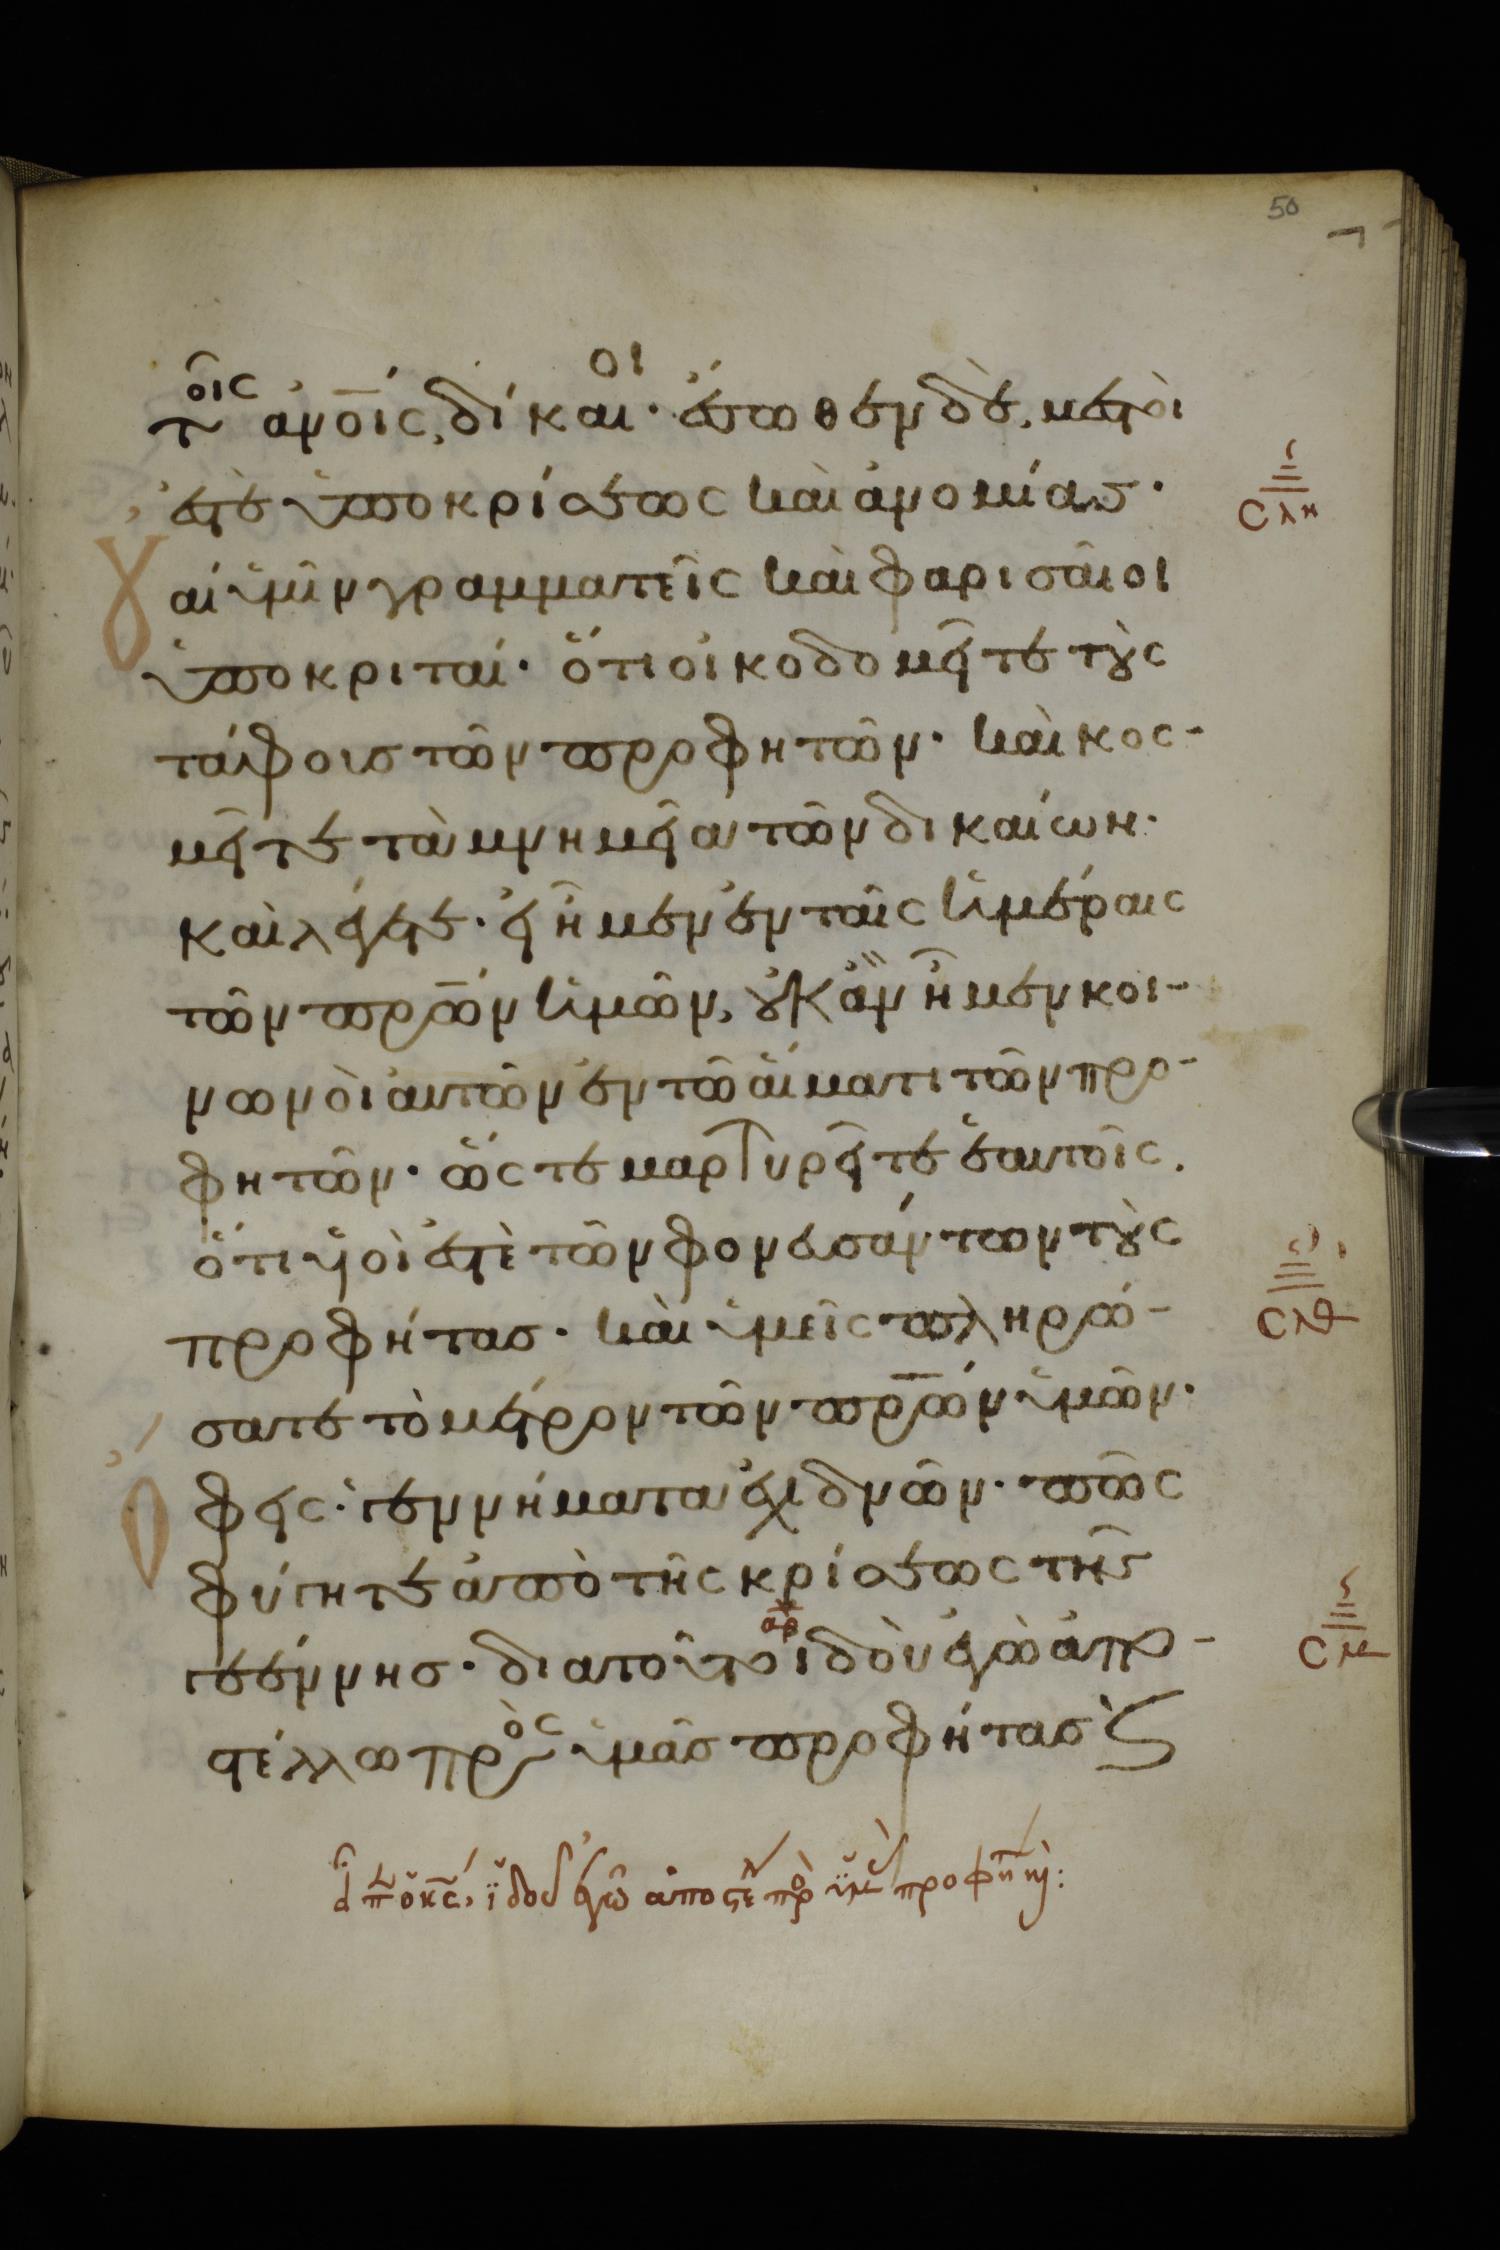 50
τοῖς ἀνοῖς, δίκαιοι· ἔσωθεν δὲ, μεστοὶ
ἐστὲ ὑποκρίσεως καὶ ἀνομίας·
Οὐαὶ ὑμῖν γραμματεῖς καὶ φαρισαῖοι
ὑποκριταί· ὅτι οἰκοδομεῖτε τοὺς
τάφους τῶν προφητῶν· καὶ κοσ-
μεῖτε τὰ μνημεῖα τῶν δικαίων·
καὶ λέγετε· εἰ ἦμεν ἐν ταῖς ἡμέραις
τῶν πρων ἡμῶν, οὐκ ἂν ἦμεν κοι-
νωνοὶ αὐτῶν ἐν τῶ αἵματι τῶν προ-
φητῶν· ὥστε μαρτυρεῖτε ἑαυτοῖς.
ὅτι υἱοί ἐστε τῶν φονευσάντων τοὺς
προφήτας· καὶ ὑμεῖς πληρώ-
σατε τὸ μέτρον τῶν πρων ὑμῶν·
Ὄφεις· γεννήματα ἐχιδνῶν· πῶς
φύγητε ἀπὸ τῆς κρίσεως τῆς
γεέννης· διατοῦτο ἰδοὺ ἐγὼ ἀπο-
στέλλω πρὸς ὑμᾶς προφήτας καὶ
σλη
σλθ
σμ
αρ
εἶπ ὁ κς, ἰδοὺ ἐγὼ ἀποστελ πρὸ ὑμ προφητ καὶ: